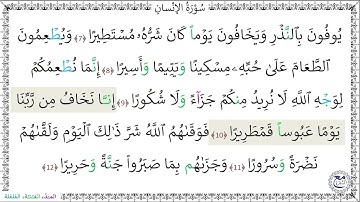 سُورَةُ الإِنسَانِ
يُوفُونَ بِالنَّذْرِ وَيَخَافُونَ يَوْماً كَانَ شَرُّهُ مُسْتَطِيرًا (7) وَيُطْعِمُونَ
الطَّعَامَ عَلَىٰ حُبِّهِ مِسْكِينًا وَيَتِيمًا وَأَسِيرًا (8) إِنَّمَا نُطْعِمُكُمْ
لِوَجْهِ اللَّهِ لَا نُرِيدُ مِنكُمْ جَزَآءً وَلَا شُكُورًا (9) إِنَّا نَخَافُ مِن رَّبِّنَا
يَوْمًا عَبُوسًا قَمْطَرِيرًا (10) فَوَقَىٰهُمُ اللَّهُ شَرَّ ذَٰلِكَ الْيَوْمِ وَلَقَّىٰهُمْ
نَضْرَةً وَسُرُورًا (11) وَجَزَىٰهُم بِمَا صَبَرُواْ جَنَّةً وَحَرِيرًا (12)
المد، الغنة، القلقلة